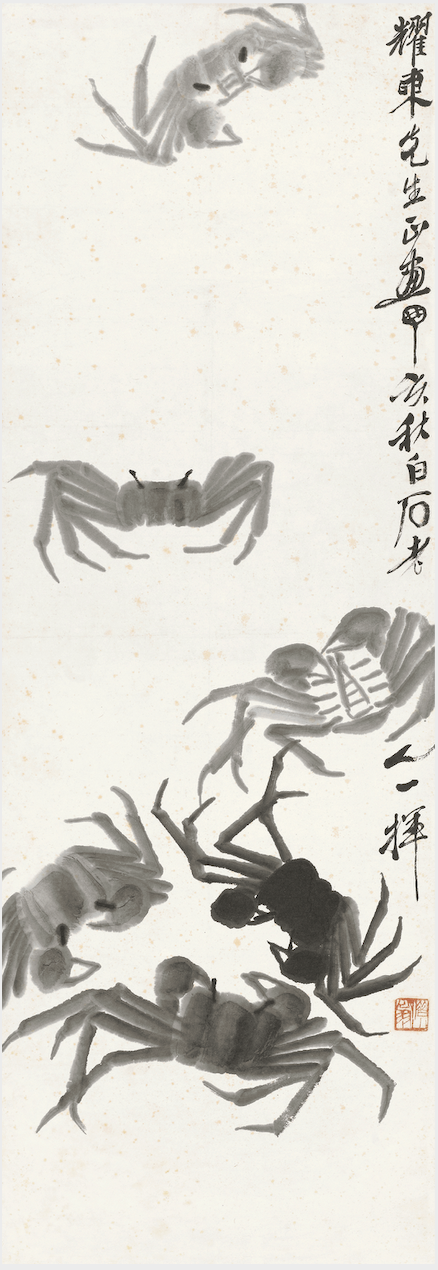 耀東先生正畫甲秋白石老
人一揮